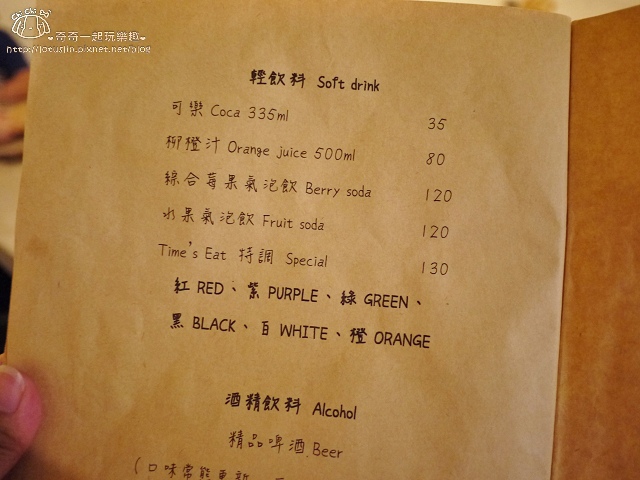 Chi Chi Go
♥奇奇一起玩樂趣♥
http://lotuslin.pixnet.net/blog
輕飲料 Soft drink
可樂 Coca 335ml 35
柳橙汁 Orange juice 500ml 80
綜合莓果氣泡飲 Berry soda 120
水果氣泡飲 Fruit soda 120
Time's Eat 特調 Special 130
紅 RED、紫 PURPLE、綠 GREEN、
黑 BLACK、白 WHITE、橙 ORANGE
酒精飲料 Alcohol
精品啤酒 Beer
(口味常態更新